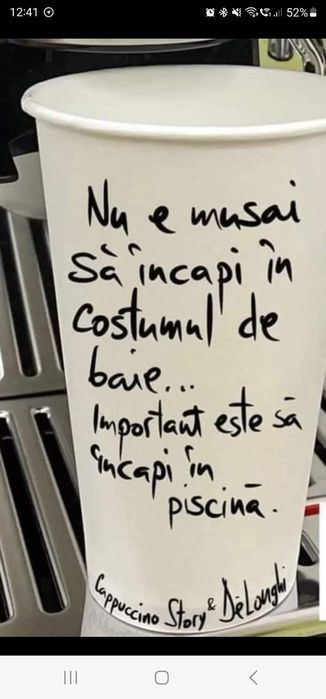 12:41 52%
Nu e musai
Să încapi în
Costumul de
baie...
Important este să
încapi în
piscină.
Cappuccino Story & DeLonghi